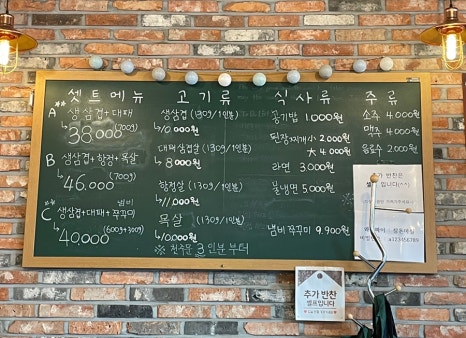 셋트메뉴
A 생삼겹+대패
↳38,000 (700g)
B 생삼겹+항정+목살
↳46,000 (700g)
C 생삼겹+대패+쭈꾸미 냄비
↳40,000 (600g+300g)
고기류
생삼겹 (130g/1인분)
↳10,000원
대패삼겹살 (130g/1인분)
↳8,000원
항정살 (130g/1인분)
↳11,000원
목살 (130g/1인분)
↳10,000원
※ 첫주문 3인분부터
식사류
공기밥 1,000원
된장찌개 小 2,000원
大 4,000원
라면 3,000원
물냉면 5,000원
냄비쭈꾸미 9,900원
주류
소주 4,000원
맥주 4,000원
음료수 2,000원
추가 반찬은
셀프입니다(^^)
a123456789
추가 반찬
셀프입니다